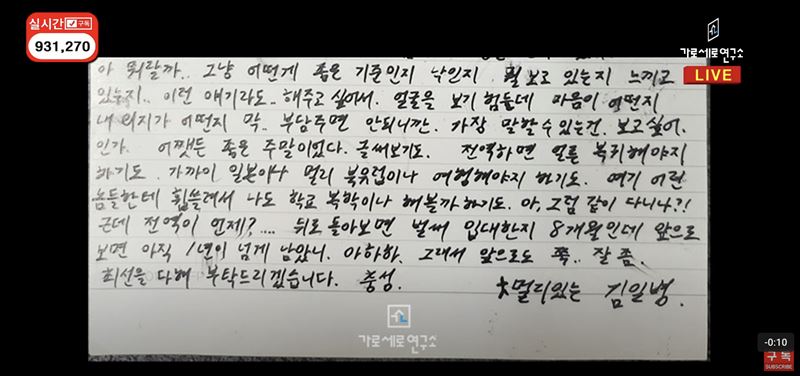 실시간 구독
931,270
가로세로연구소
LIVE
아 뭐랄까.. 그냥 어떤게 좋은 기준인지 낙인지 뭘 보고 있는지 느끼고
있는지.. 이런 얘기라도.. 해주고 싶어서. 얼굴을 보기 힘든데 마음이 어떤지
내 의지가 어떤지 막.. 부담주면 안되니깐. 가장 말할수 있는건. 보고싶어.
인가. 어쨋든 좋은 주말이었다. 글써보기도. 전역하면 얼른 복귀해야지
하기도. 가까이 일본이나 멀리 북유럽이나 여행해야지 하기도. 여기 어린
놈들한테 휩쓸려서 나도 학교 복학이나 해볼까 하기도. 아, 그럼 같이 다니나?!
근데 전역이 언제?.... 뒤로 돌아보면 벌써 입대한지 8개월인데 앞으로
보면 아직 1년이 넘게 남았니. 아하하. 그래서 앞으로도 쭉.. 잘 좀.
최선을 다해 부탁드리겠습니다. 충성.
멀리있는 김일병.
가로세로연구소
-0:10
구독
SUBSCRIBE